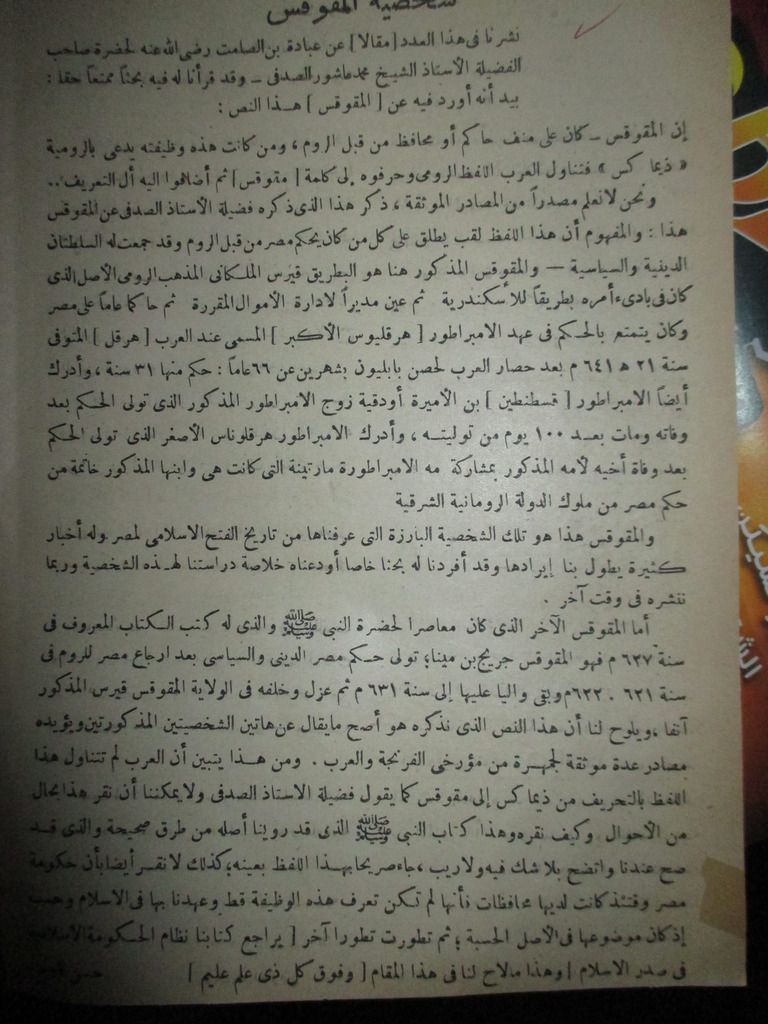 شخصية المقوقس
نشرنا فى هذا العدد [ مقالا ] عن عبادة بن الصامت رضى الله عنه لحضرة صاحب
الفضيلة الأستاذ الشيخ محمد عاشور الصدفى ــ وقد قرأنا له فيه بحثاً ممتعاً حقا :
بيد أنه أورد فيه عن [ المقوقس ] هــذا النص :
إن المقوقس ــ كان على منف حاكم أو محافظ من قبل الروم ، ومن كانت هذه وظيفته يدعى بالرومية
« ذيما كس » فتناول العرب اللفظ الرومى وحرفوه إلى كلمة [ مقوقس ] ثم أضافوا اليه أل التعريف ..
ونحن لا نعلم مصدراً من المصادر الموثقة ، ذكر هذا الذى ذكره فضيلة الأستاذ الصدفى عن المقوقس
هذا : والمفهوم أن هذا اللفظ لقب يطلق على كل من كان يحكم مصر من قبل الروم وقد جمعت له السلطتان
الدينية والسياسية ــ والمقوقس المذكور هنا هو البطريق قيرس الملكانى المذهب الرومى الأصل الذى
كان فى بادىء أمره بطريقاً للأسكندرية ثم عين مديراً لادارة الأموال المقررة ثم حاكما عاما على مصر
وكان يتمتع بالحكم فى عهد الامبراطور [ هرقليوس الأكبر ] المسمى عند العرب [ هرقل ] المتوفى
سنة ٢١ ه ٦٤١ م بعد حصار العرب لحصن بابليون بشهرين عن ٦٦ عاماً : حكم منها ٣١ سنة ، وأدرك
أيضاً الامبراطور [ قسطنطين ] بن الأميرة أودقية زوج الامبراطور المذكور الذى تولى الحكم بعد
وفاته ومات بعــد ١٠٠ يوم من توليتــه ، وأدرك الامبراطور هرقلوناس الأصغر الذى تولى الحكم
بعد وفاة أخيه لأمه المذكور بمشاركة مه الامبراطورة مارتينة التى كانت هى وابنها المذكور خاتمة من
حكم مصر من ملوك الدولة الرومانية الشرقية
والمقوقس هذا هو تلك الشخصية البارزة التى عرفناها من تاريخ الفتح الاسلامى لمصر وله أخبار
كثيرة يطول بنا إيرادها وقد أفردنا له بحثا خاصا أودعناه خلاصة دراستنا لهــذه الشخصية وربما
ننشره فى وقت آخر .
أما المقوقس الآخر الذى كان معاصرا لحضرة النبى ﷺ والذى له كتب الكتاب المعروف فى
سنة ٦٢٧ م فهو المقوقس جريج بن مينا ؛ تولى حــكم مصر الدينى والسياسى بعد ارجاع مصر للروم فى
سنة ٦٢١ . ٦٢٢ م وبقى واليا عليها إلى سنة ٦٣١ م ثم عزل وخلفه فى الولاية المقوقس قيرس المذكور
آنفا ، ويلوح لنا أن هذا النص الذى نذكره هو أصح مايقال عن هاتين الشخصيتين المذكورتين ويؤيده
مصادر عدة موثقة لجمهــرة من مؤرخى الفرنجة والعرب . ومن هــذا يتبين أن العرب لم تتناول هذا
اللفظ بالتحريف من ذيما كس إلى مقوقس كما يقول فضيلة الاستاذ الصدفى ولا يمكننا أن نقر هذا بحال
من الأحوال وكيف نقره وهذا كتاب النبى ﷺ الذى قد روينا أصله من طرق صحيحة والذى قــد
صح عندنا واتضح بلا شك فيه ولا ريب ، جاء صريحا بهــذا اللفظ بعينه ؛ كذلك لا نقــر أيضا بأن حكومة
مصر وقتئذ كانت لديها محافظات فأنها لم تكن تعرف هذه الوظيفة قط وعهدنا بها فى الاسلام
إذ كان موضوعها فى الأصل الحسبة ؛ ثم تطورت تطورا آخر [ يراجع كتابنا نظام الحــكومة الاسلامية
فى صدر الاسلام ] وهذا مالاح لنا فى هذا المقام [ وفوق كل ذى علم عليم ]